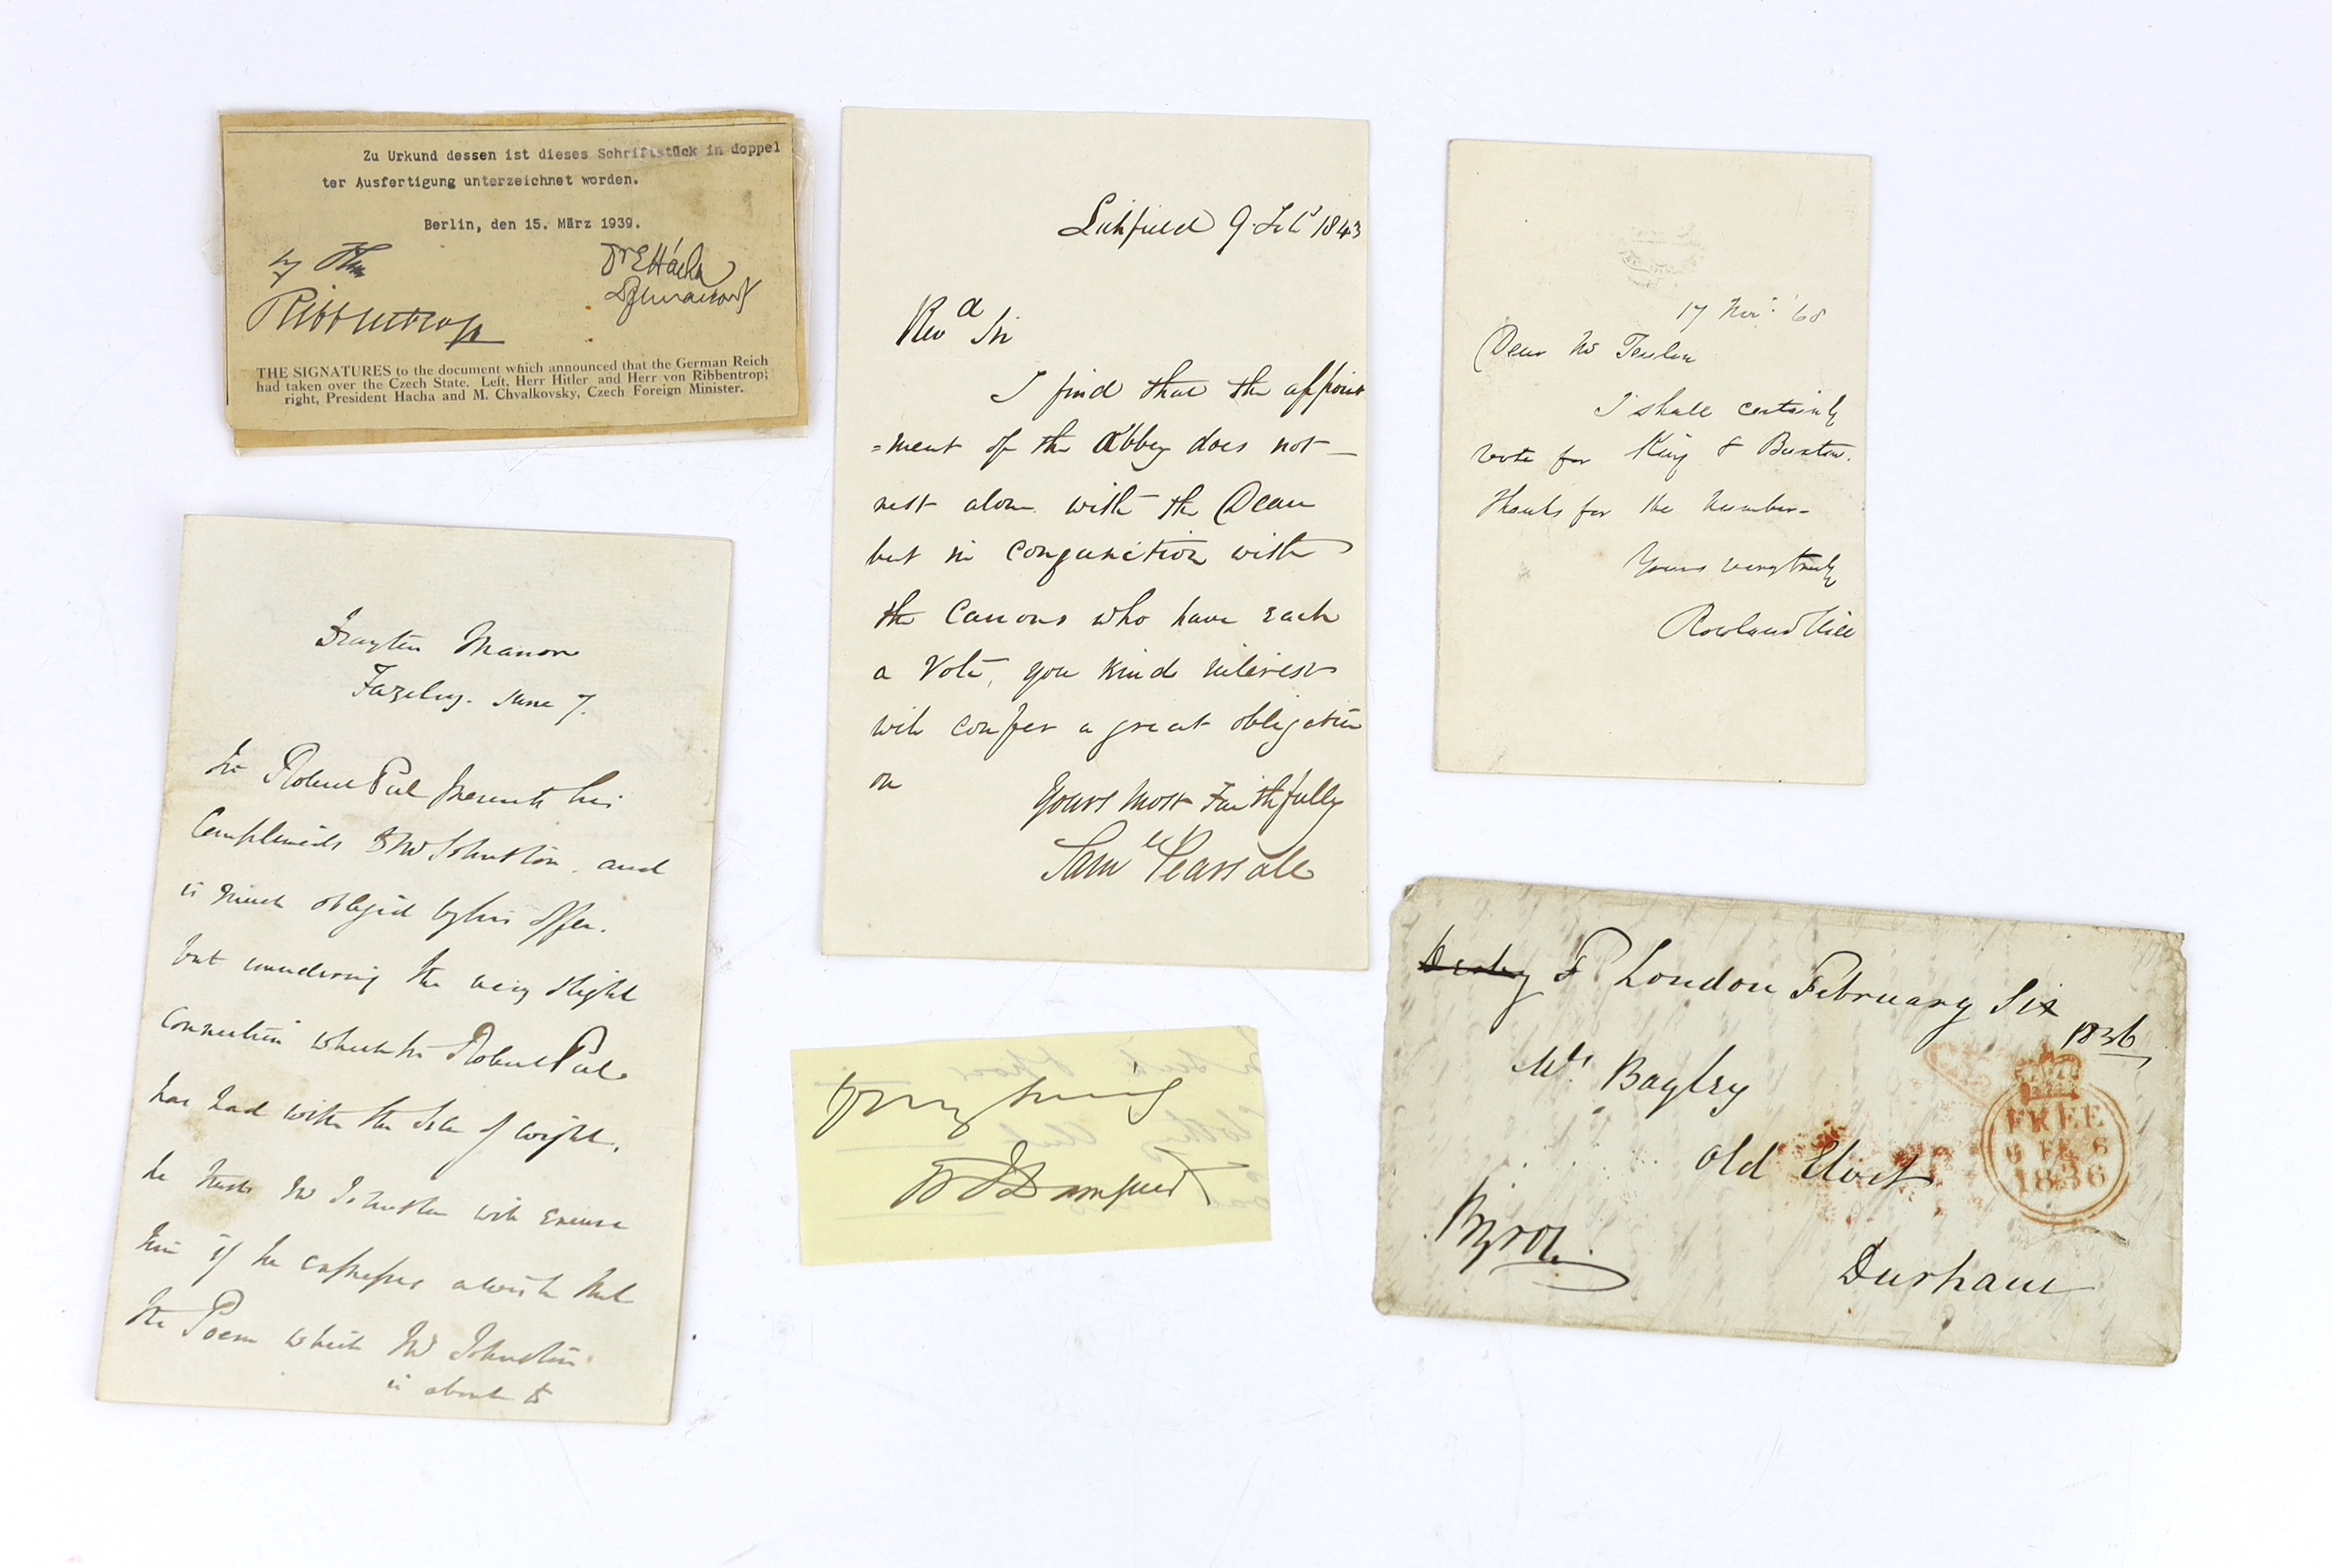 Zu Urkund dessen ist dieses Schriftstück in doppel
ter Ausfertigung unterzeichnet worden.
Berlin, den 15. März 1939.
Dr E Hácha
Ribbentrop
THE SIGNATURES to the document which announced that the German Reich
had taken over the Czech State. Left, Herr Hitler and Herr von Ribbentrop;
right, President Hacha and M. Chvalkovsky, Czech Foreign Minister.
Drayton Manor
Fazeley. June 7.
Sir Robert Peel presents his
Compliments to Mr Johnston, and
is much obliged by his offer.
but considering the very slight
Connection which Sir Robert Peel
has had with the Isle of Wight,
he trusts Mr Johnston will excuse
him if he expresses a wish that
the Poem which Mr Johnston
is about to
Lichfield 9 Feby 1843
Revd Sir
I find that the appoint
=ment of the Abbey does not
rest alone with the Dean
but in conjunction with
the Canons who have each
a Vote, you kind interest
will confer a great obligation
on
Yours most Faithfully
Saml Pearsall
17 Nov. '68
Dear Mr
I shall certainly
vote for King & Buxton.
Thanks for the number.
Yours very truly
Rowland Hill
London February Six
1836
Mrs Bagley
Old Elvet
Durham
Byron
FREE
6 FE 6
1836